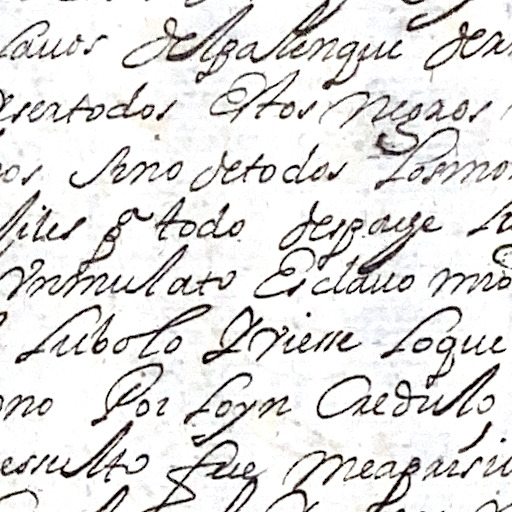 lauos del palenque der
sertodos Estos negros
os sino de todos Losmon
iles pa todo despaye lu
Vn mulato Esclauo mio
Lubolo Yviesse Loque
ono Por Loyn Credulo
essulto fue meaparsi